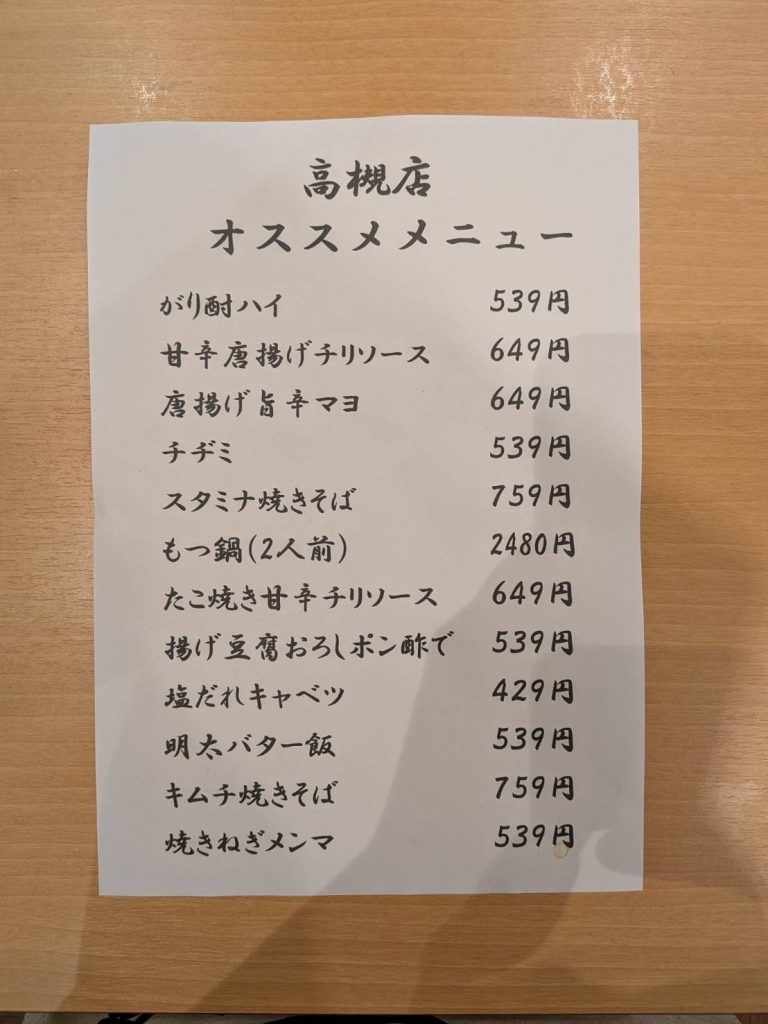 高槻店
オススメメニュー
がり酎ハイ 539円
甘辛唐揚げチリソース 649円
唐揚げ旨辛マヨ 649円
チヂミ 539円
スタミナ焼きそば 759円
もつ鍋(2人前) 2480円
たこ焼き甘辛チリソース 649円
揚げ豆腐おろしポン酢で 539円
塩だれキャベツ 429円
明太バター飯 539円
キムチ焼きそば 759円
焼きねぎメンマ 539円